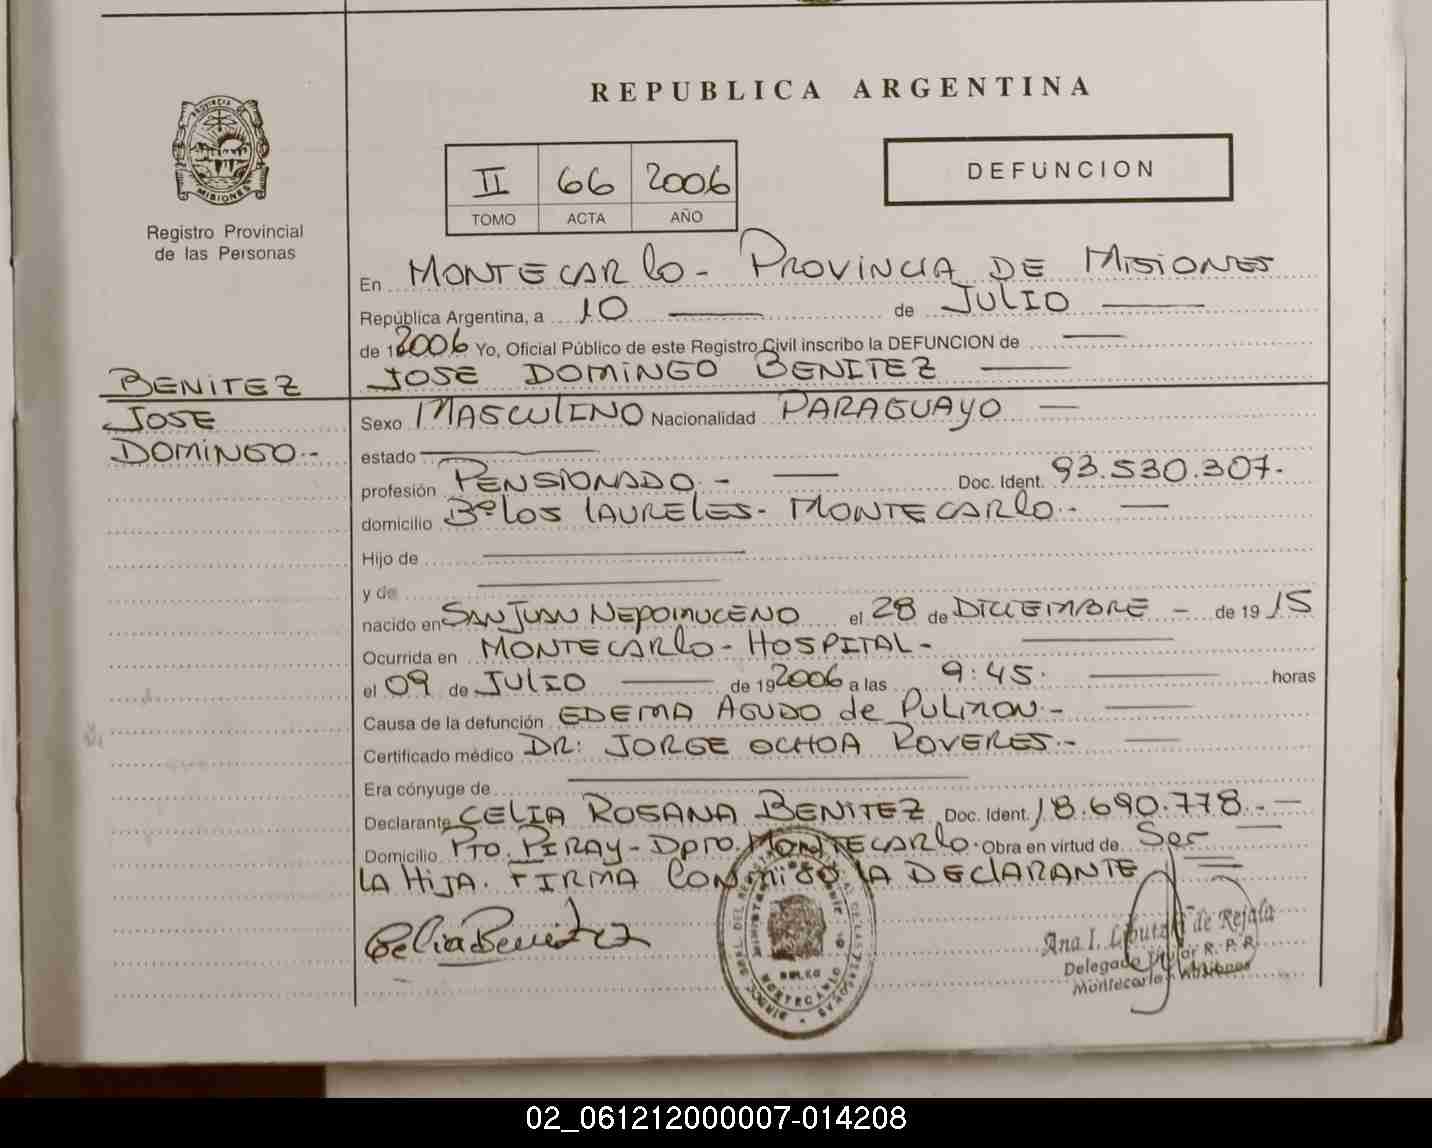 REPUBLICA ARGENTINA
PROVINCIA DE
MISIONES
Registro Provincial
de las Personas
II 66 2006
TOMO ACTA AÑO
DEFUNCION
En MONTECARLO - PROVINCIA DE MISIONES
República Argentina, a 10 de JULIO
de 12006 Yo, Oficial Público de este Registro Civil inscribo la DEFUNCION de
BENITEZ
JOSE
DOMINGO.-
JOSE DOMINGO BENITEZ
Sexo MASCULINO Nacionalidad PARAGUAYO
estado
profesión PENSIONADO.- Doc. Ident. 93.530.307.-
domicilio Bº LOS LAURELES - MONTECARLO.-
Hijo de
y de
nacido en SAN JUAN NEPOMUCENO el 28 de DICIEMBRE - de 19 15
Ocurrida en MONTECARLO - HOSPITAL -
el 09 de JULIO de 192006 a las 9:45. horas
Causa de la defunción EDEMA AGUDO de PULMON.-
Certificado médico DR: JORGE OCHOA ROVERES.-
Era cónyuge de
Declarante CELIA ROSANA BENITEZ Doc. Ident. 18.690.778.-
Domicilio PTO. PIRAY - DPTO. MONTECARLO. Obra en virtud de Ser
LA HIJA. FIRMA CONMIGO LA DECLARANTE
Celia Benitez
Ana I. de Rejala
Delegado R. P. P.
Montecarlo - Misiones
02_061212000007-014208